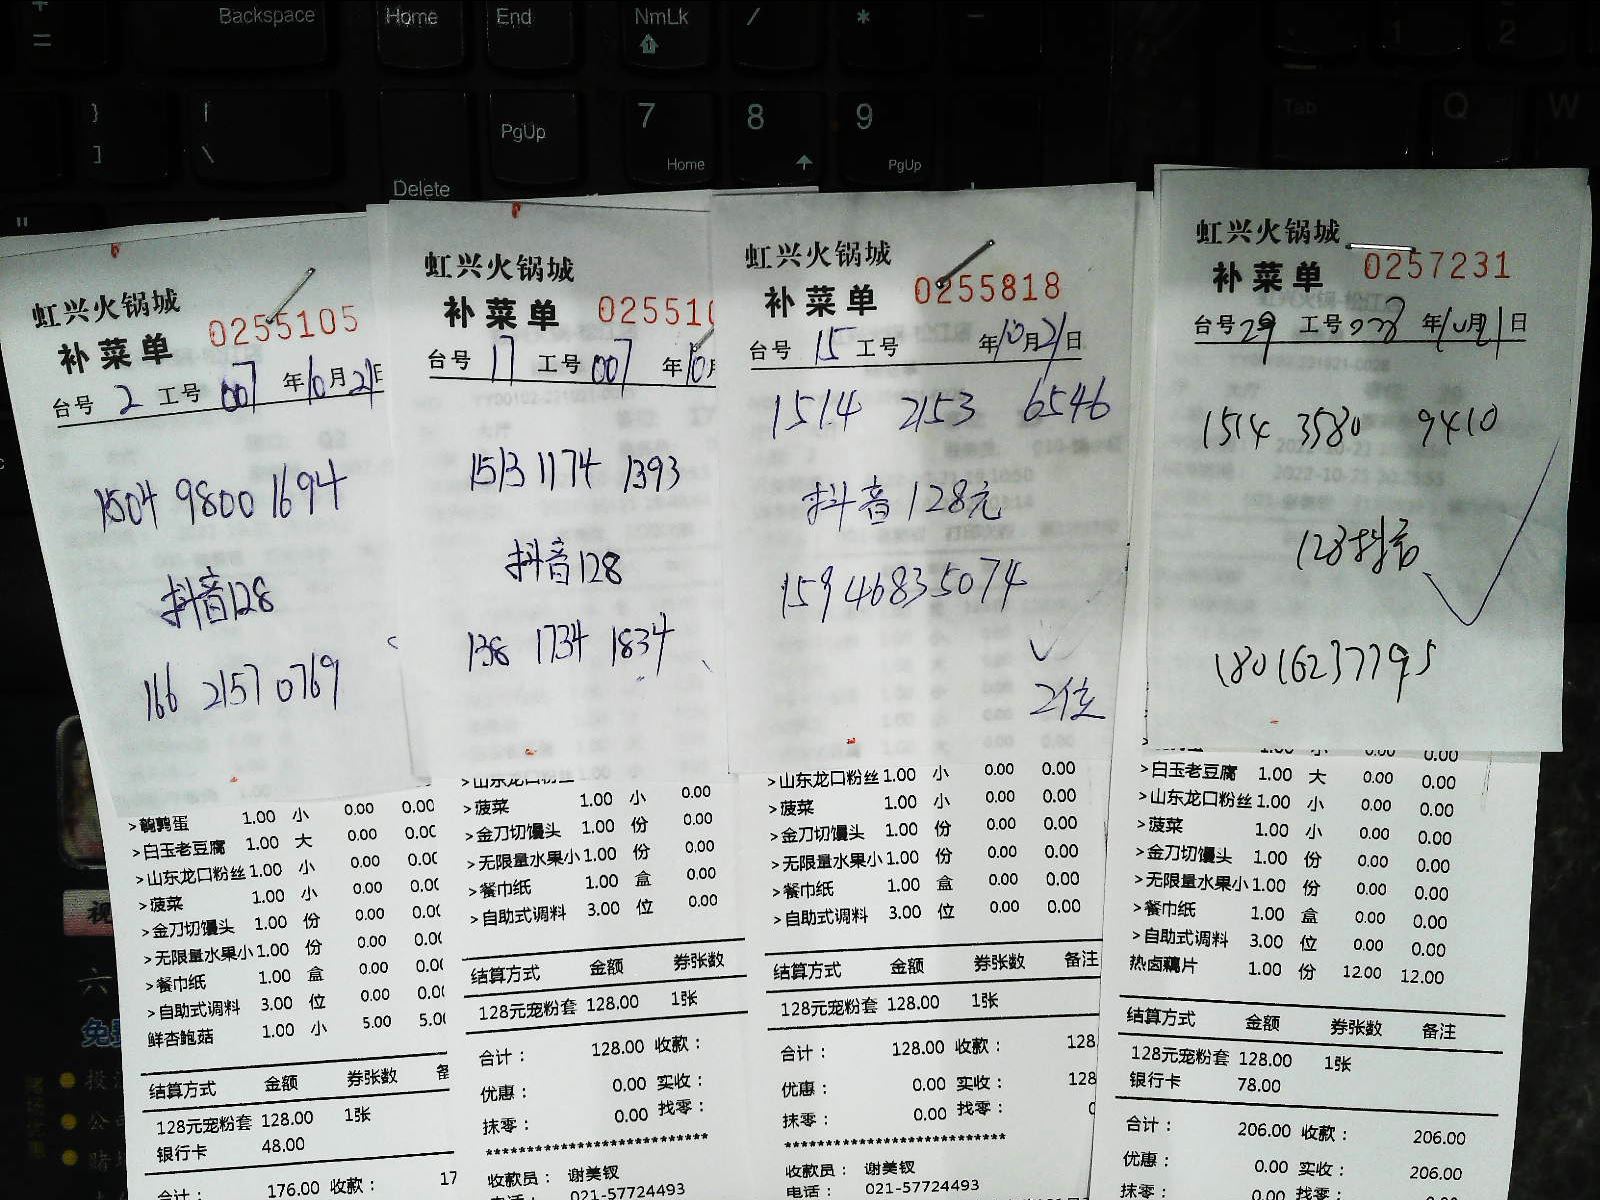 Backspace
Home
End
NmLk
/
*
-
PgUp
7
Home
8
9
PgUp
Delete
Tab
Q
W
虹兴火锅城
补菜单
0255105
台号 2 工号 007 年10月21日
1504 9800 1694
抖音128
166 2157 0769
>鹌鹑蛋 1.00 小 0.00 0.00
>白玉老豆腐 1.00 大 0.00
>山东龙口粉丝 1.00 小 0.00
>菠菜 1.00 小 0.00
>金刀切馒头 1.00 份 0.00
>无限量水果小 1.00 份 0.00
>餐巾纸 1.00 盒 0.00
>自助式调料 3.00 位 0.00
鲜杏鲍菇 1.00 小 5.00
结算方式 金额 券张数
128元宠粉套 128.00 1张
银行卡 48.00
合计： 176.00 收款： 17
虹兴火锅城
补菜单
025510
台号 17 工号 007 年10月
1513 1174 1393
抖音128
138 1734 1834
>山东龙口粉丝 1.00 小 0.00
>菠菜 1.00 小 0.00
>金刀切馒头 1.00 份 0.00
>无限量水果小 1.00 份 0.00
>餐巾纸 1.00 盒 0.00
>自助式调料 3.00 位 0.00
结算方式 金额 券张数
128元宠粉套 128.00 1张
合计： 128.00 收款：
优惠： 0.00 实收：
抹零： 0.00 找零：
*************************
收款员： 谢美钗
电话： 021-57724493
虹兴火锅城
补菜单
0255818
台号 15 工号 年10月21日
1514 2153 6546
抖音128元
159 4683 5074
2位
>山东龙口粉丝 1.00 小 0.00 0.00
>菠菜 1.00 小 0.00 0.00
>金刀切馒头 1.00 份 0.00 0.00
>无限量水果小 1.00 份 0.00 0.00
>餐巾纸 1.00 盒 0.00 0.00
>自助式调料 3.00 位 0.00 0.00
结算方式 金额 券张数 备注
128元宠粉套 128.00 1张
合计： 128.00 收款： 128
优惠： 0.00 实收： 128
抹零： 0.00 找零：
*************************
收款员： 谢美钗
电话： 021-57724493
虹兴火锅城
补菜单
0257231
台号 29 工号 028 年10月21日
1514 3580 9410
128抖音
18016237795
>白玉老豆腐 1.00 大 0.00 0.00
>山东龙口粉丝 1.00 小 0.00 0.00
>菠菜 1.00 小 0.00 0.00
>金刀切馒头 1.00 份 0.00 0.00
>无限量水果小 1.00 份 0.00 0.00
>餐巾纸 1.00 盒 0.00 0.00
>自助式调料 3.00 位 0.00 0.00
热卤藕片 1.00 份 12.00 12.00
结算方式 金额 券张数 备注
128元宠粉套 128.00 1张
银行卡 78.00
合计： 206.00 收款： 206.00
优惠： 0.00 实收： 206.00
抹零： 0.00 找零： 0.00